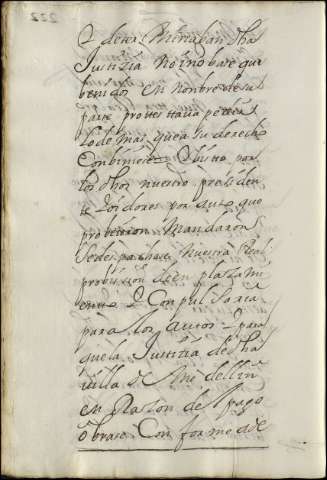 q determinaban dha
Justizia no inobase que
benidos en nonbre de su
parte protestaba pedir
lo de mas que a su derecho
conbiniese Y bisto por
los dhos nuestro presiden
te Y oidores por auto que
probeieron mandaron
se despachase nuestra Real
probision de en plazami
ento Y Conpulsoria
para los autos Y para
que la Justizia de dha
villa de
en Razon del pago
obrase Conforme a de